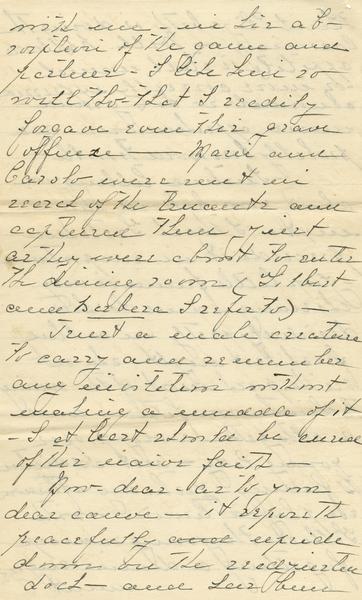 with me - in his ab-
sorption of the game and
partner - I like him so
well tho - that I readily
forgave even this grave
offense — Marie and
Carolo were sent in
search of the truants and
captured them just
as they were about to enter
the dining room (Gilbert
and Barbara I refer to) -
Trust a male creature
to carry and remember
any invitation without
making a muddle of it
- I at least should be cured
of this naive faith -
Now - dear - as to your
dear canoe - it reposeth
peacefully and upside
down on the
dock - and has been